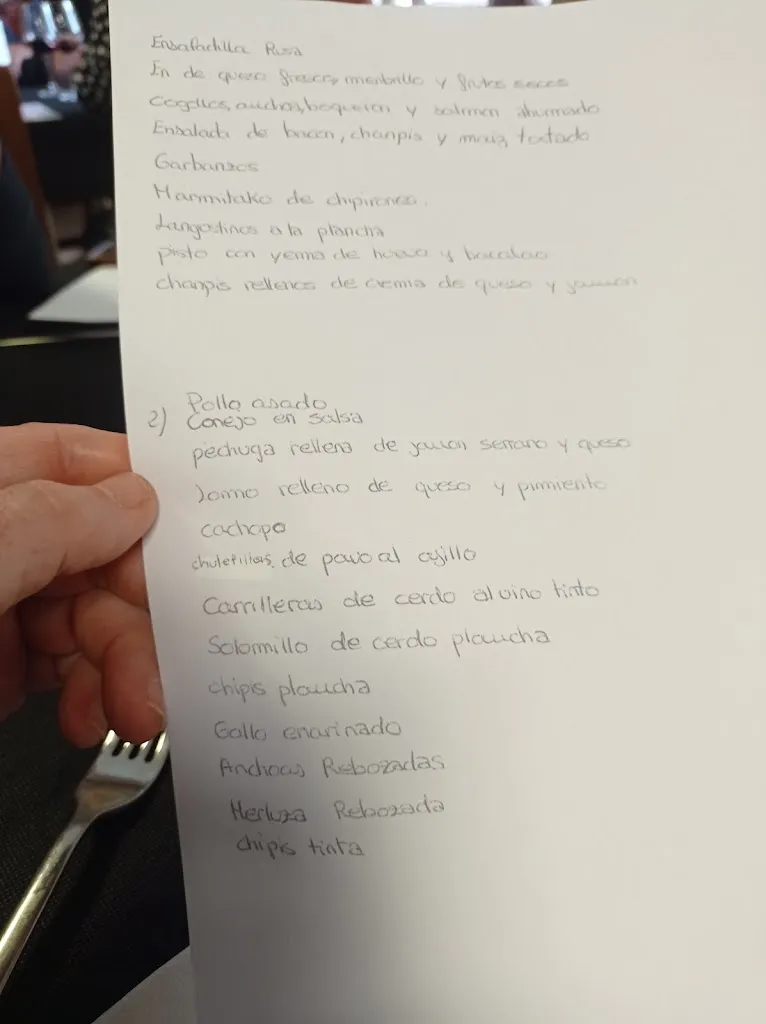 Ensaladilla Rusa
En de queso fresco, menbrillo y frutos secos
Cogollos, anchoa, boqueron y salmon ahumado
Ensalada de bacon, chanpis y maiz tostado
Garbanzos
Marmitako de chipirones.
Langostinos a la plancha
pisto con yema de huevo y bacalao
chanpis rellenos de crema de queso y jamon
2) Pollo asado
Conejo en salsa
pechuga rellena de jamon serrano y queso
Lomo relleno de queso y pimiento
cachopo
chuletillas de pavo al ajillo
Carrilleras de cerdo al vino tinto
Solomillo de cerdo plancha
chipis plancha
Gallo enarinado
Anchoas Rebozadas
Merluza Rebozada
chipis tinta